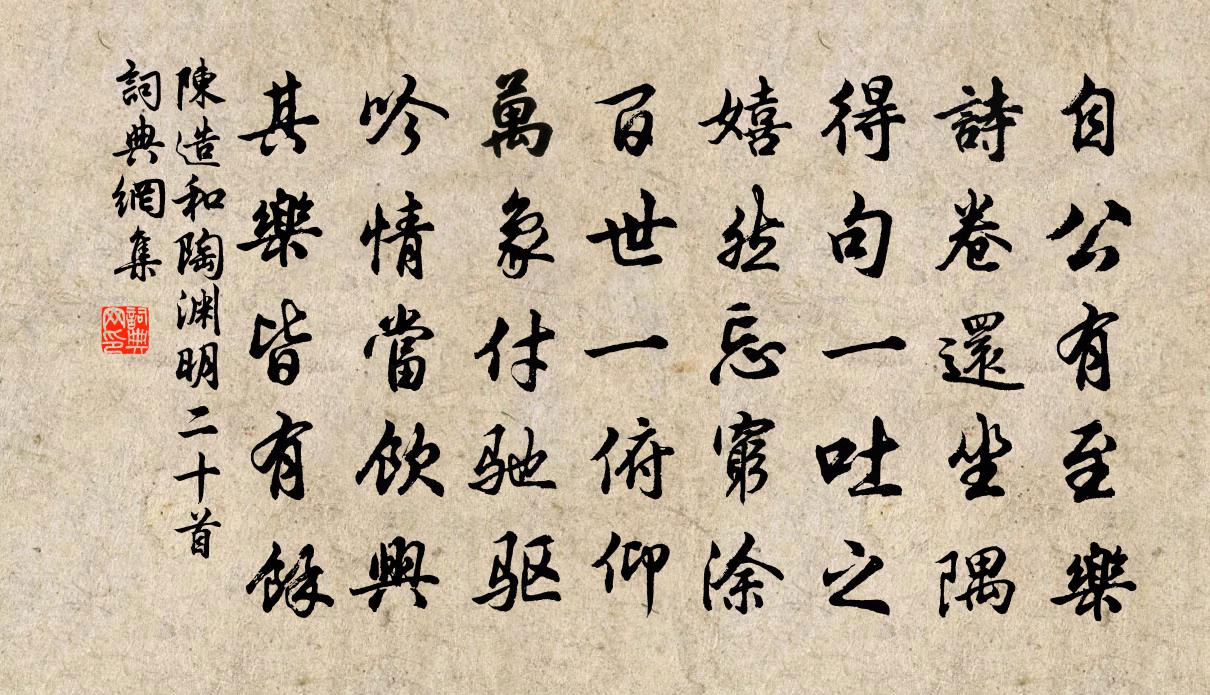 自公有至樂
詩卷還坐隅
得句一吐之
嬉然忘窮途
百世一俯仰
萬象付馳驱
吟情當飲興
其樂皆有餘
陳造和陶渊明二十首
詞典網集
詞典网印